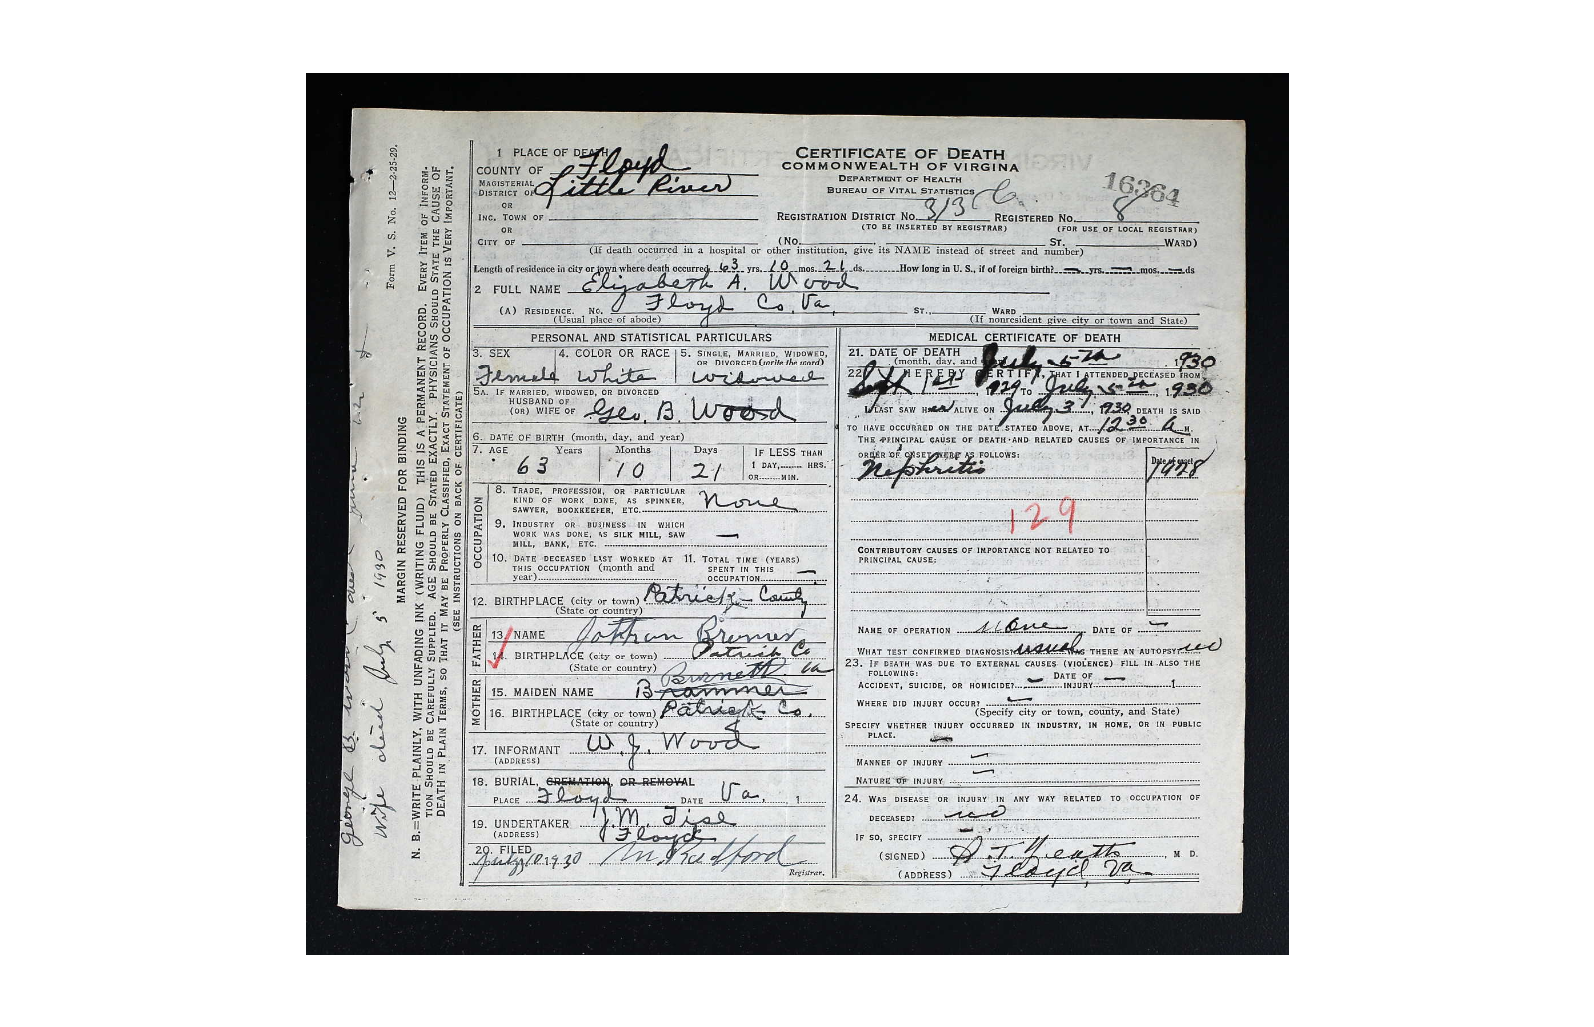 Form V. S. No. 12—2-25-29.
MARGIN RESERVED FOR BINDING
N. B.—WRITE PLAINLY, WITH UNFADING INK (WRITING FLUID) THIS IS A PERMANENT RECORD. EVERY ITEM OF INFORM-
TION SHOULD BE CAREFULLY SUPPLIED. AGE SHOULD BE STATED EXACTLY. PHYSICIANS SHOULD STATE THE CAUSE OF
DEATH IN PLAIN TERMS, SO THAT IT MAY BE PROPERLY CLASSIFIED. EXACT STATEMENT OF OCCUPATION IS VERY IMPORTANT.
(SEE INSTRUCTIONS ON BACK OF CERTIFICATE)
George B.
Wife died July 5 1930
CERTIFICATE OF DEATH
COMMONWEALTH OF VIRGINIA
DEPARTMENT OF HEALTH
BUREAU OF VITAL STATISTICS
16364
1 PLACE OF DEATH
COUNTY OF Floyd
MAGISTERIAL DISTRICT OF Little River
OR
INC. TOWN OF
OR
CITY OF
REGISTRATION DISTRICT NO. 313 REGISTERED NO. 8
(TO BE INSERTED BY REGISTRAR) (FOR USE OF LOCAL REGISTRAR)
(No. ST. WARD)
(If death occurred in a hospital or other institution, give its NAME instead of street and number)
Length of residence in city or town where death occurred 63 yrs. 10 mos. 21 ds. How long in U. S., if of foreign birth? — yrs. — mos. — ds
2 FULL NAME Elizabeth A. Wood
(A) RESIDENCE. No. Floyd Co. Va. ST., WARD
(Usual place of abode) (If nonresident give city or town and State)
PERSONAL AND STATISTICAL PARTICULARS
3. SEX 4. COLOR OR RACE 5. SINGLE, MARRIED, WIDOWED,
OR DIVORCED (write the word)
Female White Widowed
5A. IF MARRIED, WIDOWED, OR DIVORCED
HUSBAND OF
(OR) WIFE OF Geo. B. Wood
6. DATE OF BIRTH (month, day, and year)
7. AGE Years Months Days IF LESS THAN
63 10 21 1 DAY, HRS.
OR MIN.
OCCUPATION
8. TRADE, PROFESSION, OR PARTICULAR
KIND OF WORK DONE, AS SPINNER,
SAWYER, BOOKKEEPER, ETC. None
9. INDUSTRY OR BUSINESS IN WHICH
WORK WAS DONE, AS SILK MILL, SAW
MILL, BANK, ETC. —
10. DATE DECEASED LAST WORKED AT 11. TOTAL TIME (YEARS)
THIS OCCUPATION (month and SPENT IN THIS
year) OCCUPATION —
12. BIRTHPLACE (city or town) Patrick County
(State or country)
FATHER
13. NAME
14. BIRTHPLACE (city or town) Patrick Co
(State or country) Va
MOTHER
Burnett
15. MAIDEN NAME Brammer
16. BIRTHPLACE (city or town) Patrick Co.
(State or country)
17. INFORMANT W. J. Wood
(ADDRESS)
18. BURIAL, CREMATION, OR REMOVAL
PLACE Floyd DATE Va. 1
19. UNDERTAKER J. M.
(ADDRESS) Floyd
20. FILED
July 10, 1930
Registrar.
MEDICAL CERTIFICATE OF DEATH
21. DATE OF DEATH
(month, day, and year) July 5th 1930
22. I HEREBY CERTIFY, THAT I ATTENDED DECEASED FROM
Sept 1st, 1929 TO July 5th, 1930
I LAST SAW Her ALIVE ON July 3, 1930 DEATH IS SAID
TO HAVE OCCURRED ON THE DATE STATED ABOVE, AT 12 30 A M.
THE PRINCIPAL CAUSE OF DEATH AND RELATED CAUSES OF IMPORTANCE IN
ORDER OF ONSET WERE AS FOLLOWS: Date of onset
Nephritis 1928
129
CONTRIBUTORY CAUSES OF IMPORTANCE NOT RELATED TO
PRINCIPAL CAUSE:
NAME OF OPERATION none DATE OF —
WHAT TEST CONFIRMED DIAGNOSIS? usual WAS THERE AN AUTOPSY? no
23. IF DEATH WAS DUE TO EXTERNAL CAUSES (VIOLENCE) FILL IN ALSO THE
FOLLOWING:
ACCIDENT, SUICIDE, OR HOMICIDE? — DATE OF INJURY — 1
WHERE DID INJURY OCCUR? —
(Specify city or town, county, and State)
SPECIFY WHETHER INJURY OCCURRED IN INDUSTRY, IN HOME, OR IN PUBLIC
PLACE. —
MANNER OF INJURY —
NATURE OF INJURY —
24. WAS DISEASE OR INJURY IN ANY WAY RELATED TO OCCUPATION OF
DECEASED? no
IF SO, SPECIFY —
(SIGNED) , M D.
(ADDRESS) Floyd, Va.